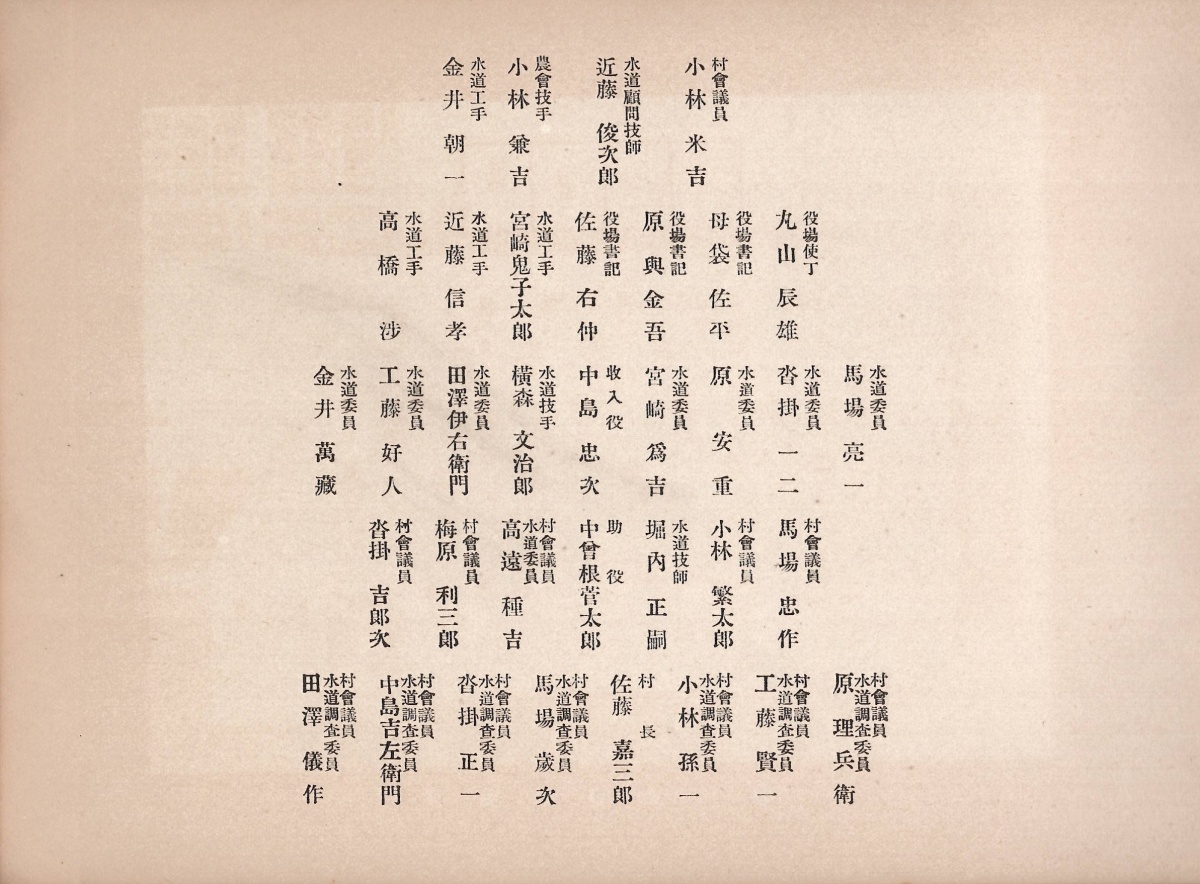 村會議員
小林米吉
水道顧問技師
近藤俊次郎
農會技手
小林兼吉
水道工手
金井朝一
役場使丁
丸山辰雄
役場書記
母袋佐平
役場書記
原與金吾
役場書記
佐藤右仲
水道工手
宮崎鬼子太郎
水道工手
近藤信孝
水道工手
高橋涉
水道委員
馬場亮一
水道委員
沓掛一二
水道委員
原安重
水道委員
宮崎爲吉
收入役
中島忠次
水道技手
橫森文治郎
水道委員
田澤伊右衛門
水道委員
工藤好人
水道委員
金井萬藏
村會議員
馬場忠作
村會議員
小林繁太郎
水道技師
堀內正嗣
助役
中曾根菅太郎
村會議員
水道委員
高遠種吉
村會議員
梅原利三郎
村會議員
沓掛吉郎次
村會議員
水道調査委員
原理兵衛
村會議員
水道調査委員
工藤賢一
村會議員
水道調査委員
小林孫一
村長
佐藤嘉三郎
村會議員
水道調査委員
馬場歲次
村會議員
水道調査委員
沓掛正一
村會議員
水道調査委員
中島吉左衛門
村會議員
水道調査委員
田澤儀作